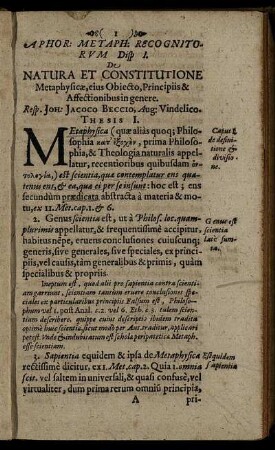 ( 1 )
APHOR: METAPH: RECOGNITO-
RVM Disp I.
De
NATURA ET CONSTITUTIONE
Metaphysicæ, eius Obiecto, Principiis &
Affectionibus in genere.
Resp. JOH: JACOBO BECCIO, Aug: Vindelico.
THESIS I.
MEtaphysica (quæ aliàs quoq; Philo-
sophia κατ' ἐξοχὴν, prima Philoso-
phia, & Theologia naturalis appel-
latur, recentioribus quibusdam
) est scientia, quæ contemplatur ens qua-
tenus ens, & ea, quæ ei per se insunt: hoc est; ens
secundum prædicata abstracta à materia & mo-
tu, ex 11. Met. cap. 2. & 6.
Caput 1.
de defini-
tione &
divisio-
ne.
2. Genus scientia est, ut à Philos. loc. quam-
plurimis appellatur, & frequentissimè accipitur,
habitus nẽpe, eruens conclusiones cuiuscunq;
generis, sive generales, sive speciales, ex princi-
piis, vel causis, tàm generalibus & primis, quàm
specialibus & propriis.
Genus est
scientia
latè sum-
ta.
Ineptum est, quod alii pro sapientia contra scienti-
am garriunt, scientiam tantùm eruere conclusiones spe-
ciales ex particularibus principiis. Falsum est, Philoso-
phum vel 1. post Anal. c. 2. vel 6. Eth. c. 3. talem scienti-
am describere, quippe cuius descriptio ibidem tradita
optimè huic scientiæ, sicut modò per Aut. traditur, applicari
potest. Unde & indubitatum est schola peripatetica Metaph.
esse scientiam.
3. Sapientia equidem & ipsa de Metaphysica
rectissimè dicitur, ex 1. Met. cap. 2. Quia 1. omnia
scit, vel saltem in universali, & quasi confusè, vel
virtualiter, dum prima rerum omniũ principia,
Est quidem
sapientia
A
pri-